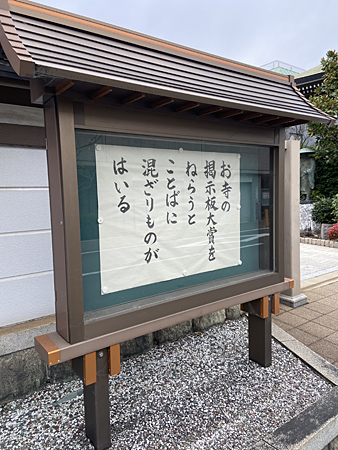 お寺の
掲示板大賞を
ねらうと
ことばに
混ざりものが
はいる